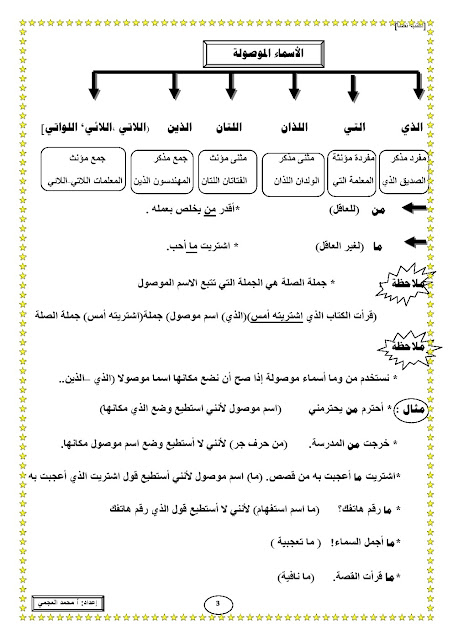 الأسماء الموصولة
الذي التي اللذان اللتان الذين (اللاتي ،اللائي، اللواتي]
مفرد مذكر مفردة مؤنثة مثنى مذكر مثنى مؤنث جمع مذكر جمع مؤنث
الصديق الذي المعلمة التي الولدان اللذان الفتاتان اللتان المهندسون الذين المعلمات اللاتي.اللائي
من (للعاقل) *أقدر من يخلص بعمله .
ما (لغير العاقل) * اشتريت ما أحب.
ملاحظة * جملة الصلة هي الجملة التي تتبع الاسم الموصول
(قرأت الكتاب الذي اشتريته أمس)(الذي) اسم موصول) جملة(اشتريته أمس) جملة الصلة
ملاحظة
* نستخدم من وما أسماء موصولة إذا صح أن نضع مكانها اسما موصولا (الذي –الذين..
مثال : * أحترم من يحترمني (اسم موصول لأنني استطيع وضع الذي مكانها)
* خرجت من المدرسة. (من حرف جر) لأنني لا أستطيع وضع اسم موصول مكانها.
*اشتريت ما أعجبت به من قصص. (ما) اسم موصول لأنني أستطيع قول اشتريت الذي أعجبت به
* ما رقم هاتفك؟ (ما اسم استفهام) لأنني لا أستطيع قول الذي رقم هاتفك
*ما أجمل السماء! ( ما تعجبية )
*ما قرأت القصة. (ما نافية)
3
إعداد: أ محمد العجمي